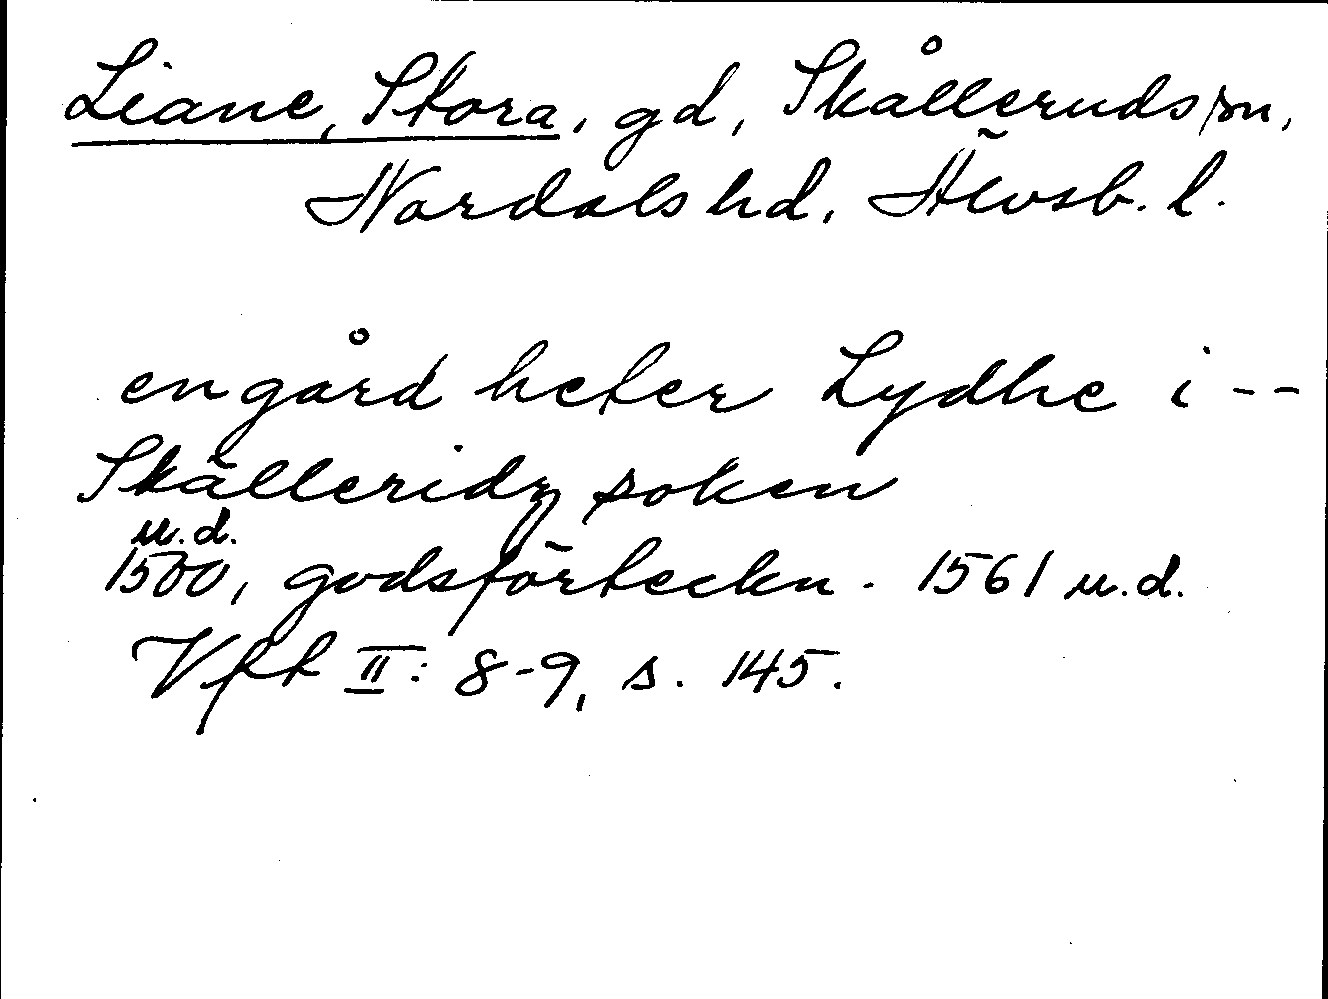 Liane, Stora, gd, Skålleruds sn,
Nordals hd, Älvsb. l.
en gård heter Lydhe i --
Skälleridz soken
u.d.
1500, godsförteckn. 1561 u.d.
Vft II: 8-9, s. 145.